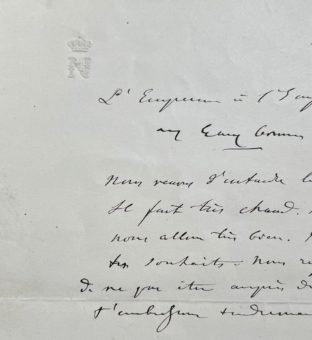 N
L'Empereur à l'Imp
aux Eaux Bonnes
Nous venons d'entendre la
Il fait très chaud.
nous allons très bien.
tes souhaits. Nous re
de ne pas être auprès de
t'embrasser tendrement